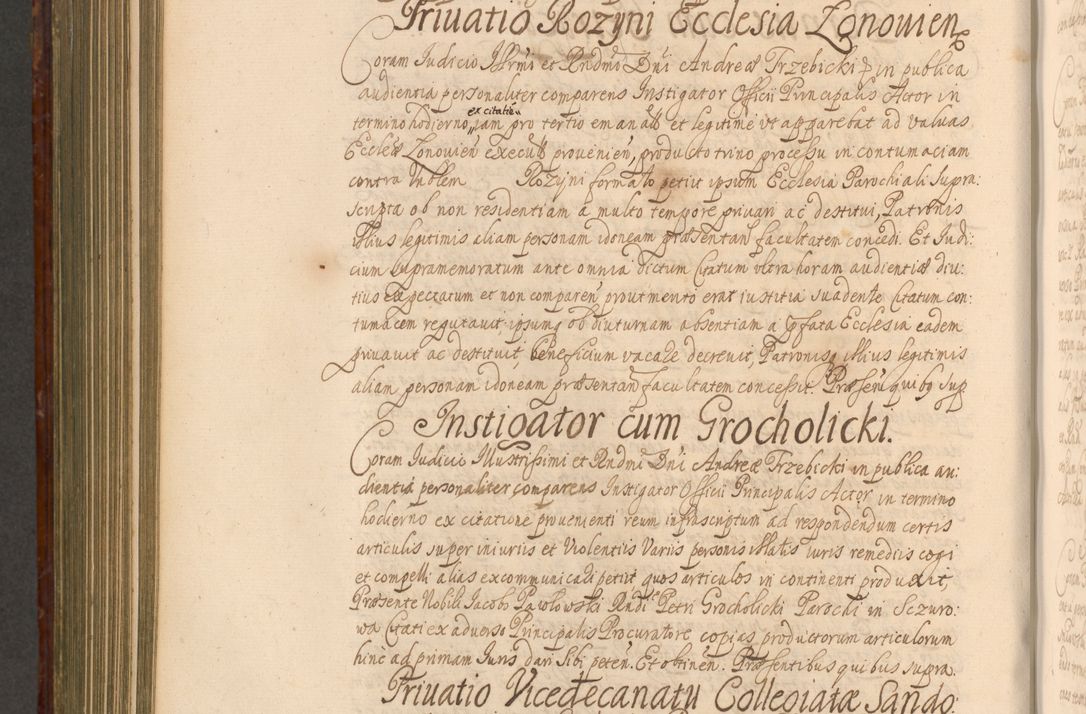 Priuatio Rozyni Ecclesia Zonouien
Coram Judicio Illrmi et Rndmi Dni Andreæ Trzebicki in publica
audientia personaliter comparens Instigator Officii Principalis Actor in
termino hodierno, ex citatie iam pro tertio emanats et legitime vt apparebat ad valuas
Ecclæ Zonouien executs prouenien, producto trino processu in contumaciam
contra Nobilem Rozyni formato petiit ipsum Ecclesia Parochiali supra:
scripta ob non residentiam a multo tempore priuari ac destitui, Patronis
illius legitimis aliam personam idoneam præsentan facultatem concedi. Et Judi:
cium supramemoratum ante omnia dictum Citatum vltra horam audientiæ diu:
tius expectatum et non comparen prout mento erat iustitia suadente Citatum con:
tumacem reputauit, ipsumq ob diuturnam absentiam a pfata Ecclesia eadem
priuauit ac destituit, beneficium vacare decreuit, Patronisq illius legitimis
aliam personam idoneam præsentan facultatem concessit. Præsen quibq sup
Instigator cum Grocholicki.
Coram Judicio Illustrissimi et Rndmi Dni Andreæ Trzebicki in publica au:
dientia personaliter comparens Instigator Officii Principalis Actor in termino
hodierno ex citatione prouenienti reum infrascriptum ad respondendum certis
articulis super iniuriis et Violentiis Variis personis illatis iuris remediis cogi
et compelli alias excommunicadi petiit quos articulos in continenti produxit,
Præsente Nobili Jacobo Pawlowski Rndi Petri Grocholicki Parochi in Sczuro:
wa Citati ex aduerso Principalis Procuratore, copias productorum articulorum
hinc ad primam Juris dari sibi peten. Et obtinen. Præsentibus quibus supra.
Priuatio Vicedecanatu Collegiatæ Sando: